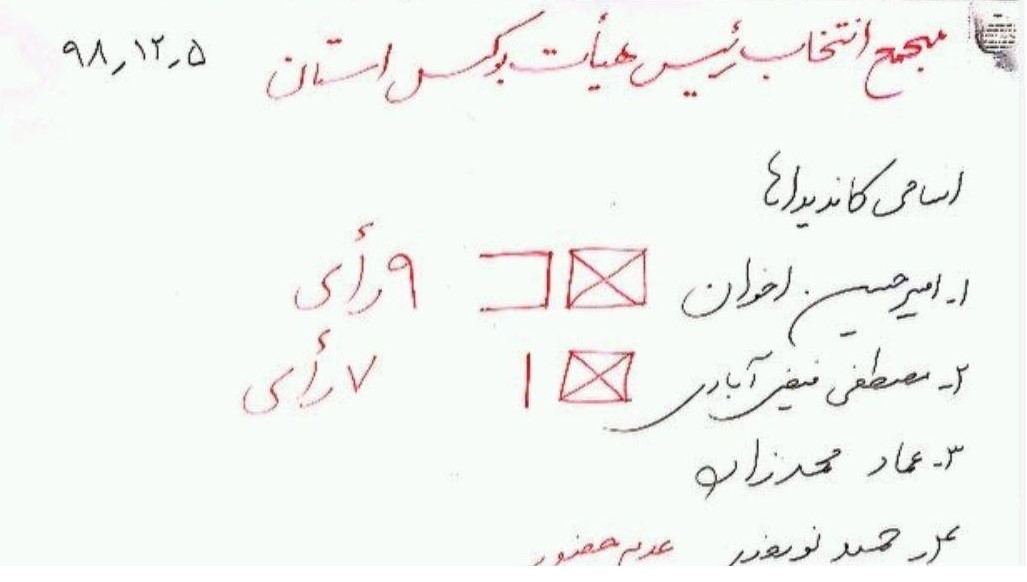 مجمع انتخاب رئیس هیأت بوکس استان ۹۸٫۱۲٫۵
اسامی کاندیداها
۱- امیرحسین اخوان ۹ رأی
۲- مصطفی فیض آبادی ۷ رأی
۳- عماد محمدزاده
۴- حمید نوروزی عدم حضور